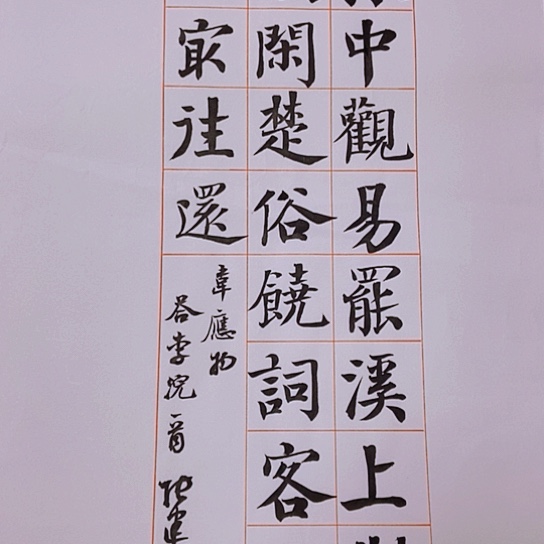 中觀易罷溪上
閑楚俗饒詞客
㝡往還
韋應物
答李浣一首